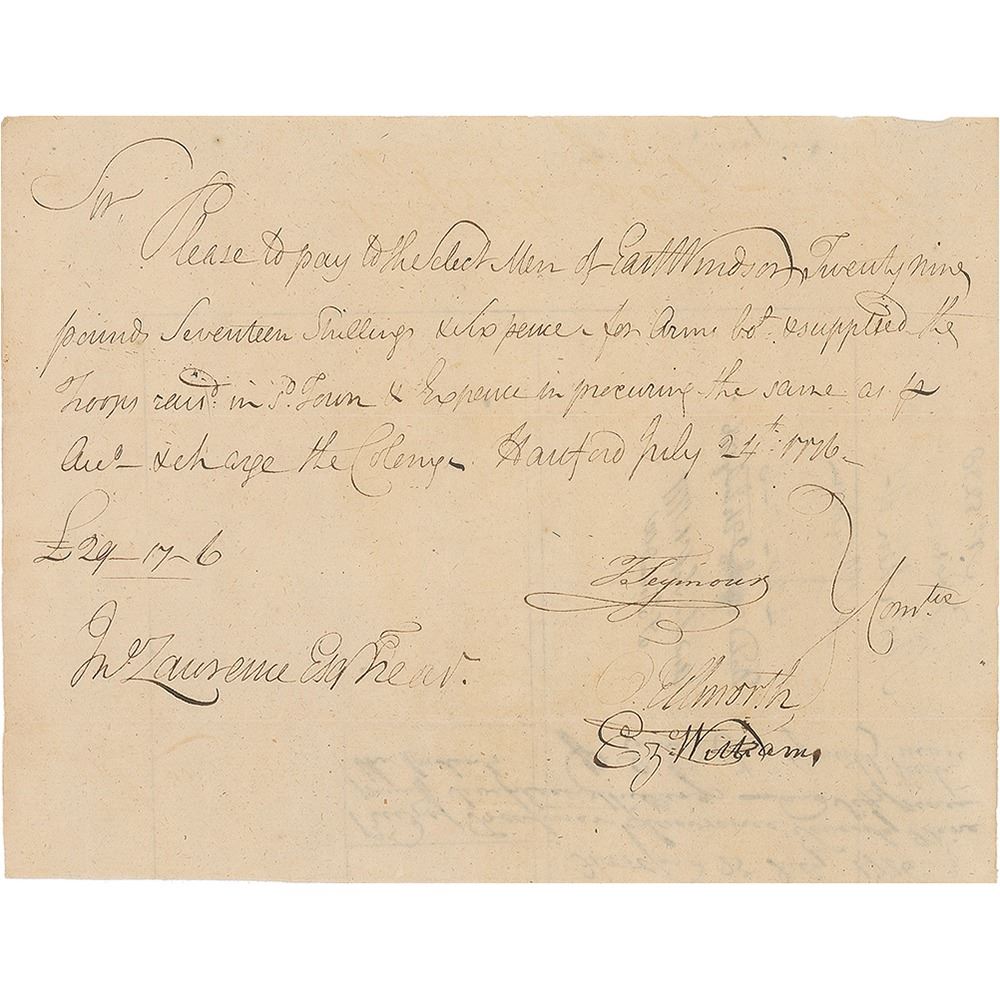 Sir,
Please to pay to the Select Men of East Windsor, Twenty nine
pounds Seventeen Shillings & six pence for Arms bot. & supplied the
Troops raisd. in sd. Town & Expence in procuring the same as pr
Acco & charge the Colony. Hartford July 24th. 1776.
£29-17-6
T Seymour
Comtee
Jno. Lawrence Esq Treasr.
O. Ellsworth
Ez. Williams